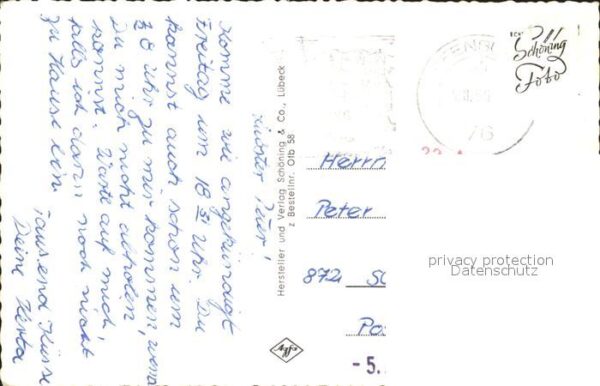 Liebster Peter!
Komme wie angekündigt
Freitag um 18 51 Uhr. Du
kannst auch schon um
Uhr zu mir kommen, wenn
Du mich nicht abholen
kannst. Warte auf mich,
falls ich dann noch nicht
zu Hause bin
Tausend Küsse
Deine Herta
Hersteller und Verlag Schöning & Co., Lübeck
z Bestellnr. Otb 58
Agfa
Schöning
Foto
76
Herrn
Peter
872
- 5.
privacy protection
Datenschutz